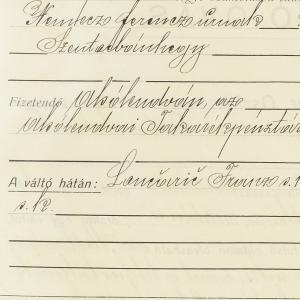 Nemtecz ferencz úrnak
Szentorbánhegy
Fizetendő Alsólendván, az
Alsólendvai Takarékpénztár
A váltó hátán: Lončarič Franz s. k.
s. k.